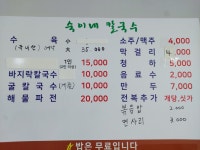 숙이네 칼국수
수 육
(국내산) 대 35,000
1인 15,000
바지락칼국수 10,000
굴 칼국수 (겨울) 10,000
해 물 파 전 20,000
소주/맥주 4,000
막 걸 리 4,000
청 하 5,000
음 료 수 2,000
만 두 7,000
전복추가 계당,싯가
볶음밥 2,000
면사리 2,000
밥은 무료입니다